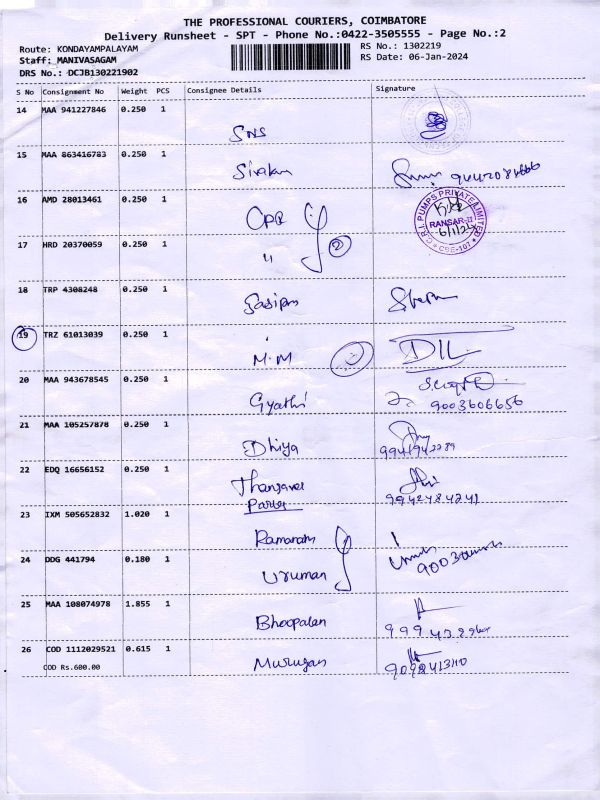 THE PROFESSIONAL COURIERS, COIMBATORE
Delivery Runsheet - SPT - Phone No.:0422-3505555 - Page No.:2
Route: KONDAYAMPALAYAM RS No.: 1302219
Staff: MANIVASAGAM RS Date: 06-Jan-2024
DRS No.: DCJB130221902
S No Consignment No Weight PCS Consignee Details Signature
14 MAA 941227846 0.250 1 SNS
15 MAA 863416783 0.250 1
16 AMD 28013461 0.250 1
C.R.I. PUMPS PRIVATE LIMITED
RANSAR-II
6/1/24
CBE-107
17 HRD 20370059 0.250 1 " 2
18 TRP 4308248 0.250 1
19 TRZ 61013039 0.250 1 M.M
20 MAA 943678545 0.250 1 Gyathi 9003606656
21 MAA 105257878 0.250 1 Dhiya
22 EDQ 16656152 0.250 1 9942484241
23 IXM 505652832 1.020 1
24 DDG 441794 0.180 1 Uruman
25 MAA 108074978 1.855 1 Bhoopalan
26 COD 1112029521 0.615 1 Murugan
COD Rs.600.00